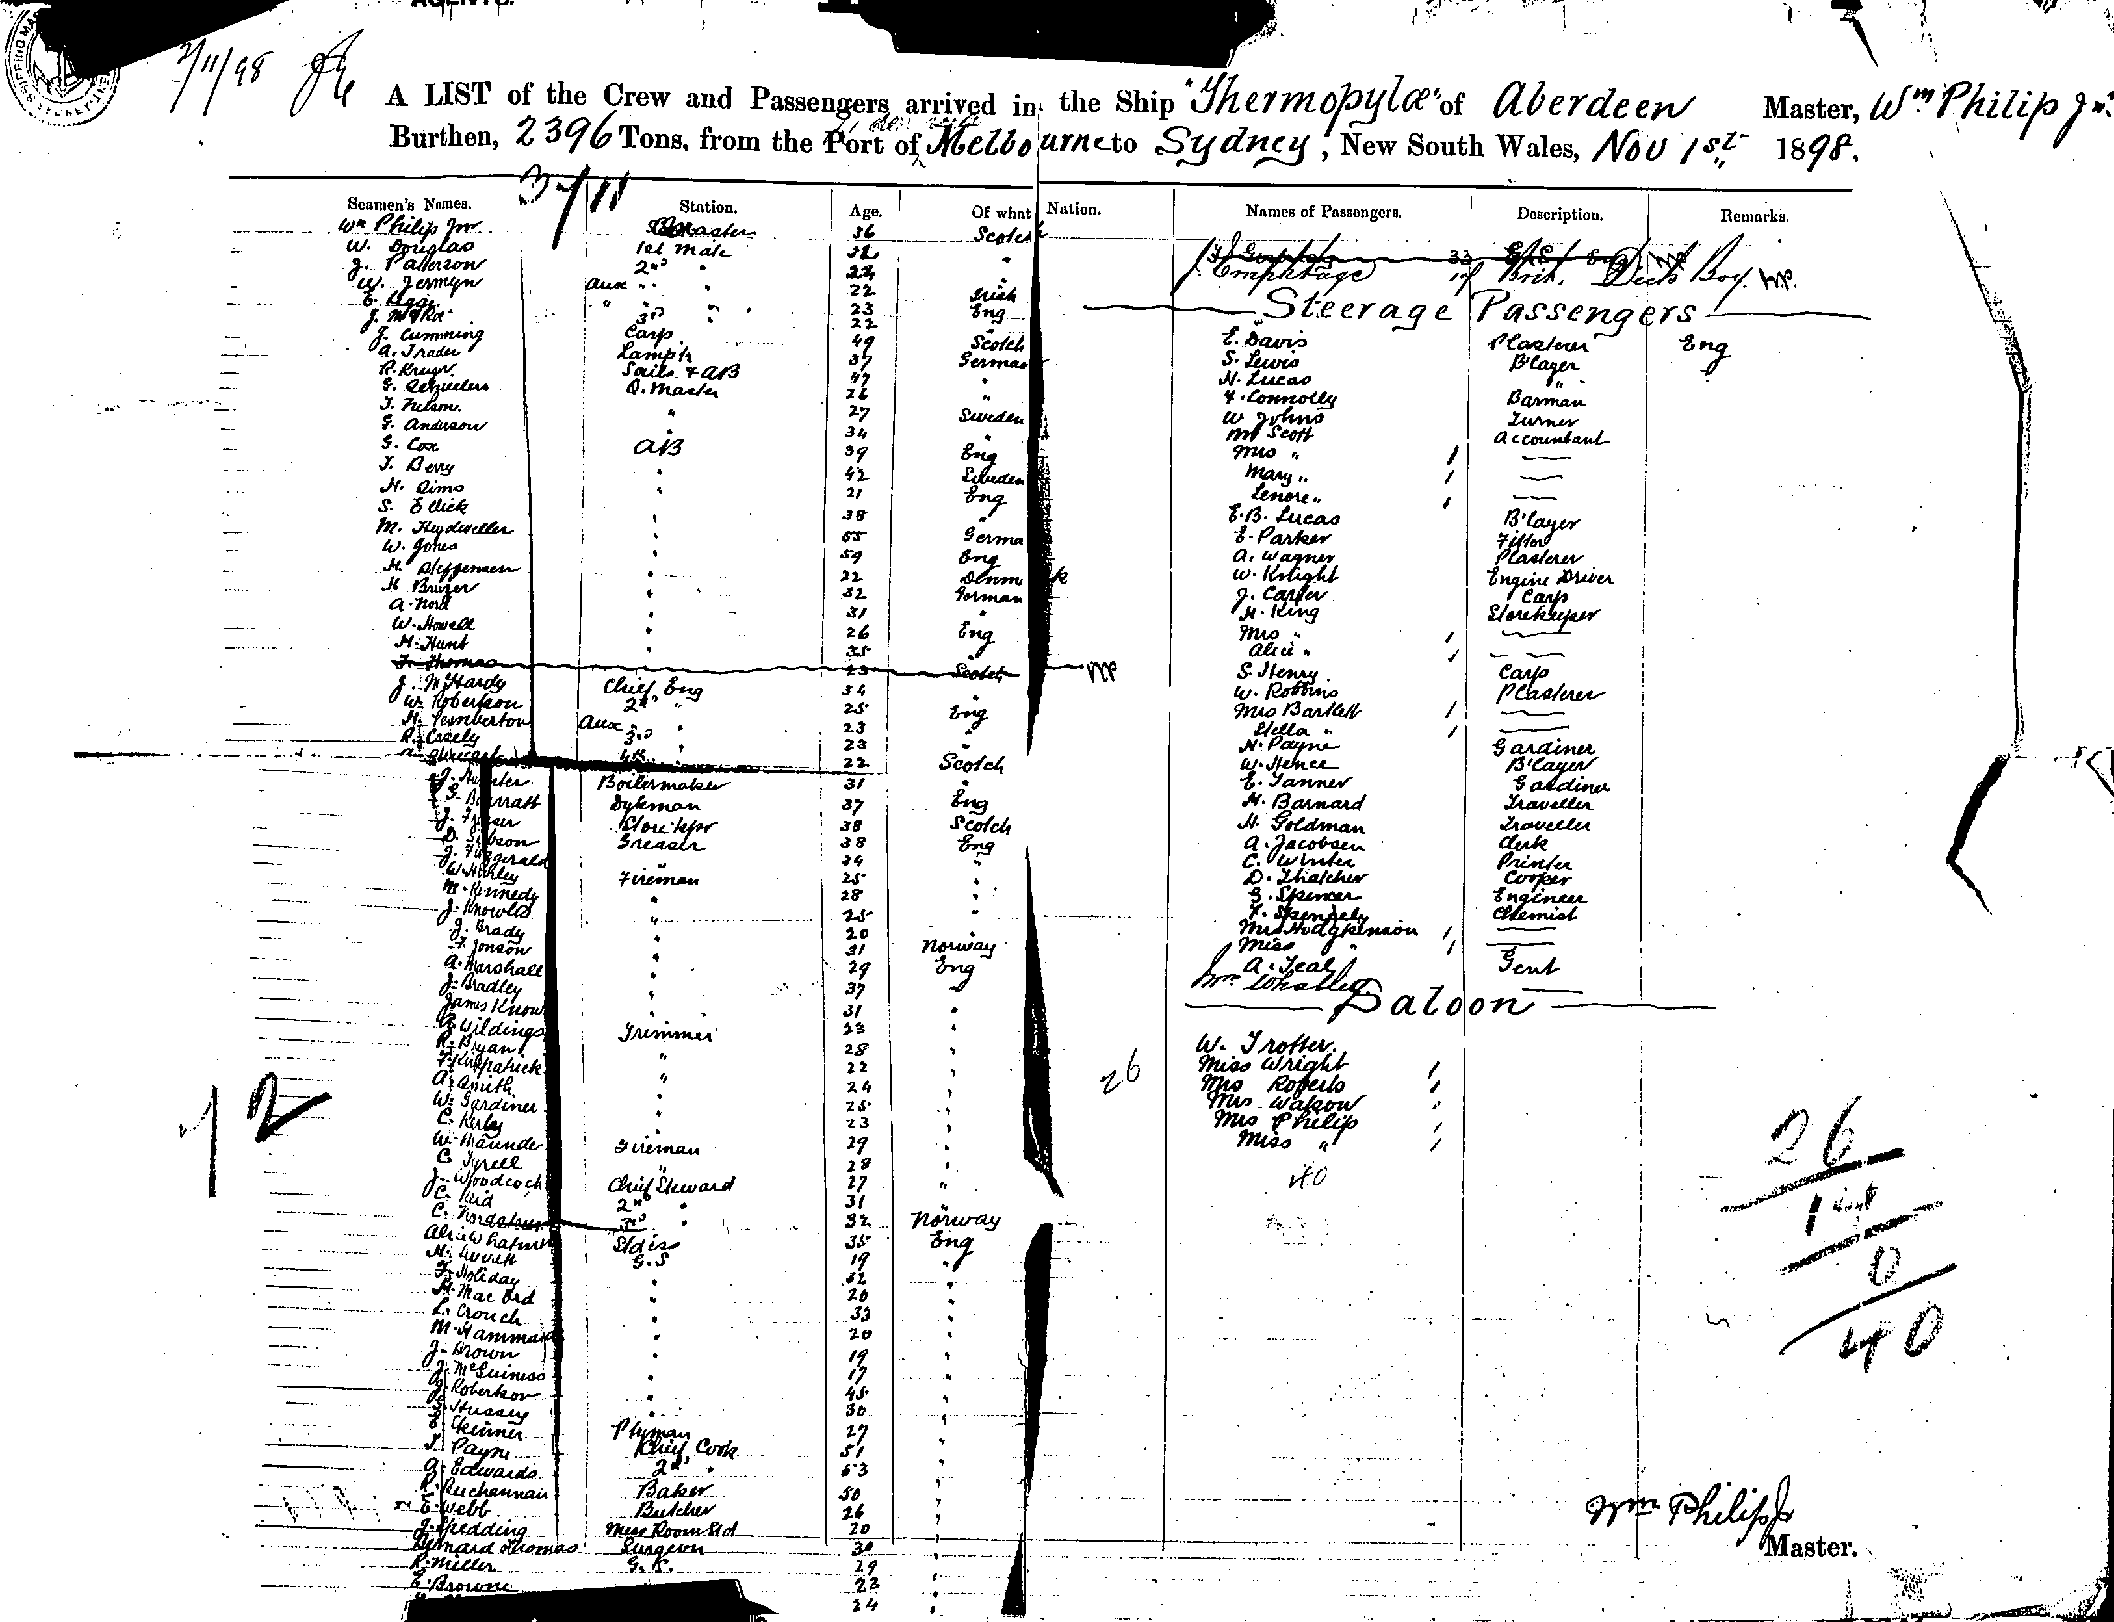 2/11/98
A LIST of the Crew and Passengers arrived in the Ship "Thermopylæ" of Aberdeen Master, Wm Philip Jnr.
Burthen, 2396 Tons, from the Port of Melbourne to Sydney, New South Wales, Nov 1st 1898.
Seamen's Names. Station. Age. Of what Nation.
Wm Philip Jnr. Master 36 Scotch
W. Douglas 1st Mate 32 "
J. Patterson 2nd "
W. Jermyn Aux " " 22 Irish
" " " 23 Eng
3rd " 22 "
J. Cumming Carp. 49 Scotch
A. Trader Lamps 37 German
R. Kruger Sails & AB 47 "
Q. Master 26 "
T. Nelson " 27 Sweden
G. Anderson " 34 "
G. Cox AB 39 Eng
T. Berry " 42 Sweden
H. Sims " 21 Eng
S. Ellick " 38 "
M. Heydweller " 55 Germa
W. Jones " 59 Eng
H. Steffensen " 22 Denm k
H. " 32 German
A. Nord " 31 "
W. Howell " 26 Eng
H. Hunt " 35 "
T. Thomas 23 Scotch
J. McHardy Chief Eng 34 "
W. Robertson 2nd " 25 Eng
H. Pemberton Aux " " 23 "
R. Casely 3rd " 23 "
4th 22 Scotch
J. Hunter Boilermaker 31 "
G. Barratt Dykeman 37 Eng
J. Fraser Storekpr 38 Scotch
D. Gibson Greaser 38 Eng
J. Fitzgerald " 24 "
W. Hurley Fireman 25 "
M. Kennedy " 28 "
J. Knowles " 25 "
J. Brady " 20 "
F. Jonson " 31 Norway
A. Marshall " 29 Eng
J. Bradley " 37 "
James Know " 31 "
A. Wildings Trimmer 23 "
R. Bryan " 28 "
F. Kirkpatrick " 22 "
A. Smith " 24 "
W. Gardiner " 25 "
C. Kirby " 23 "
W. Maunde Fireman 29 "
C. Tyrell " 28 "
J. Woodcock Chief Steward 27 "
C. Reid 2nd " 31 "
C. 3rd " 32 Norway
Alice Whatum Stdss 35 Eng
H. G.S 19 "
F. Holiday " 32 "
H. Mac Ord " 20 "
L. Crouch " 33 "
M. Hammard " 20 "
J. Brown " 19 "
J. McGuiness " 17 "
J. Robertson " 45 "
Hussey " 30 "
E. Skinner Ptyman 27 "
T. Payne Chief Cook 51 "
A. Edwards 2nd " 53 "
R. Buchannan Baker 50 "
E. Webb Butcher 26 "
J. Spedding Mess Room Std 20 "
Bernard Thomas Surgeon 30 "
R. Miller G.S. 29 "
E. Browne 22 "
24 "
72
Names of Passengers. Description. Remarks.
Emphtage 17 Brit. Deck Boy.
Steerage Passengers
E. Davis Plasterer Eng
S. Lewis B'layer "
H. Lucas "
F. Connolly Barman
W. Johns Turner
Mr Scott Accountant
Mrs "
Mary "
Lenore "
E.B. Lucas B'layer
E. Parker Fitter
A. Wagner Plasterer
W. Knight Engine Driver
J. Carter Carp
H. King Storekeeper
Mrs "
Alice "
S. Henry Carp
W. Robbins Plasterer
Mrs Bartlett
Stella "
H. Payne Gardiner
W. Hence B'layer
E. Tanner Gardiner
H. Barnard Traveller
H. Goldman Traveller
A. Jacobsen Clerk
C. Winter Printer
D. Thatcher Cooper
G. Spencer Engineer
F. Spensely Chemist
Mrs Hodgkinson
Miss "
A. Teal Gent
Mr Whalley
Saloon
W. Trotter.
Miss Wright
Mrs Roberts
Mrs Watson
Mrs Philip
Miss "
26
40
26
1
0
40
Wm Philip Jr
Master.